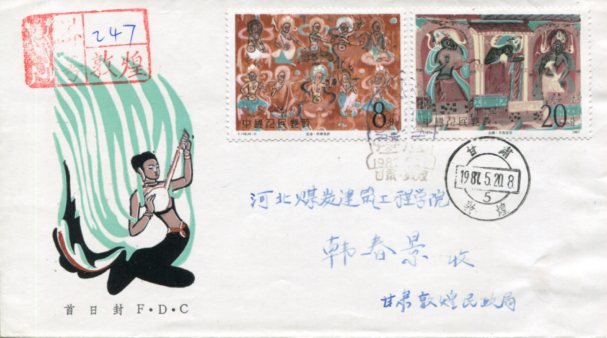 247
敦煌
8分
中国人民邮政
20分
中国人民邮政
1987
甘肃·敦煌
甘肃
1987.5.20.8
5
敦煌
河北煤炭建筑工程学院
韩春景 收
甘肃敦煌民政局
首日封 F·D·C